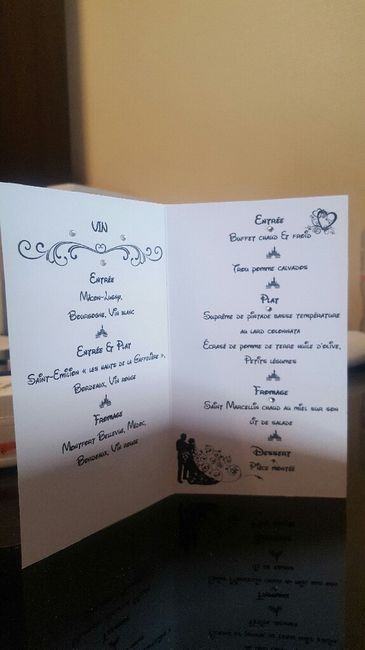 VIN
Entrée
Mâcon-Lugny,
Bourgogne, Vin blanc
Entrée & Plat
Saint-Emilion « les hauts de la Gaffelière »,
Bordeaux, Vin rouge
Fromage
Montfort Bellevue, Médoc,
Bordeaux, Vin rouge
Entrée
Buffet chaud & froid
Trou pomme calvados
Plat
Suprême de pintade basse température
au lard colonnata
Écrasé de pomme de terre huile d'olive,
Petits légumes
Fromage
Saint Marcellin chaud au miel sur son
lit de salade
Dessert
Pièce montée